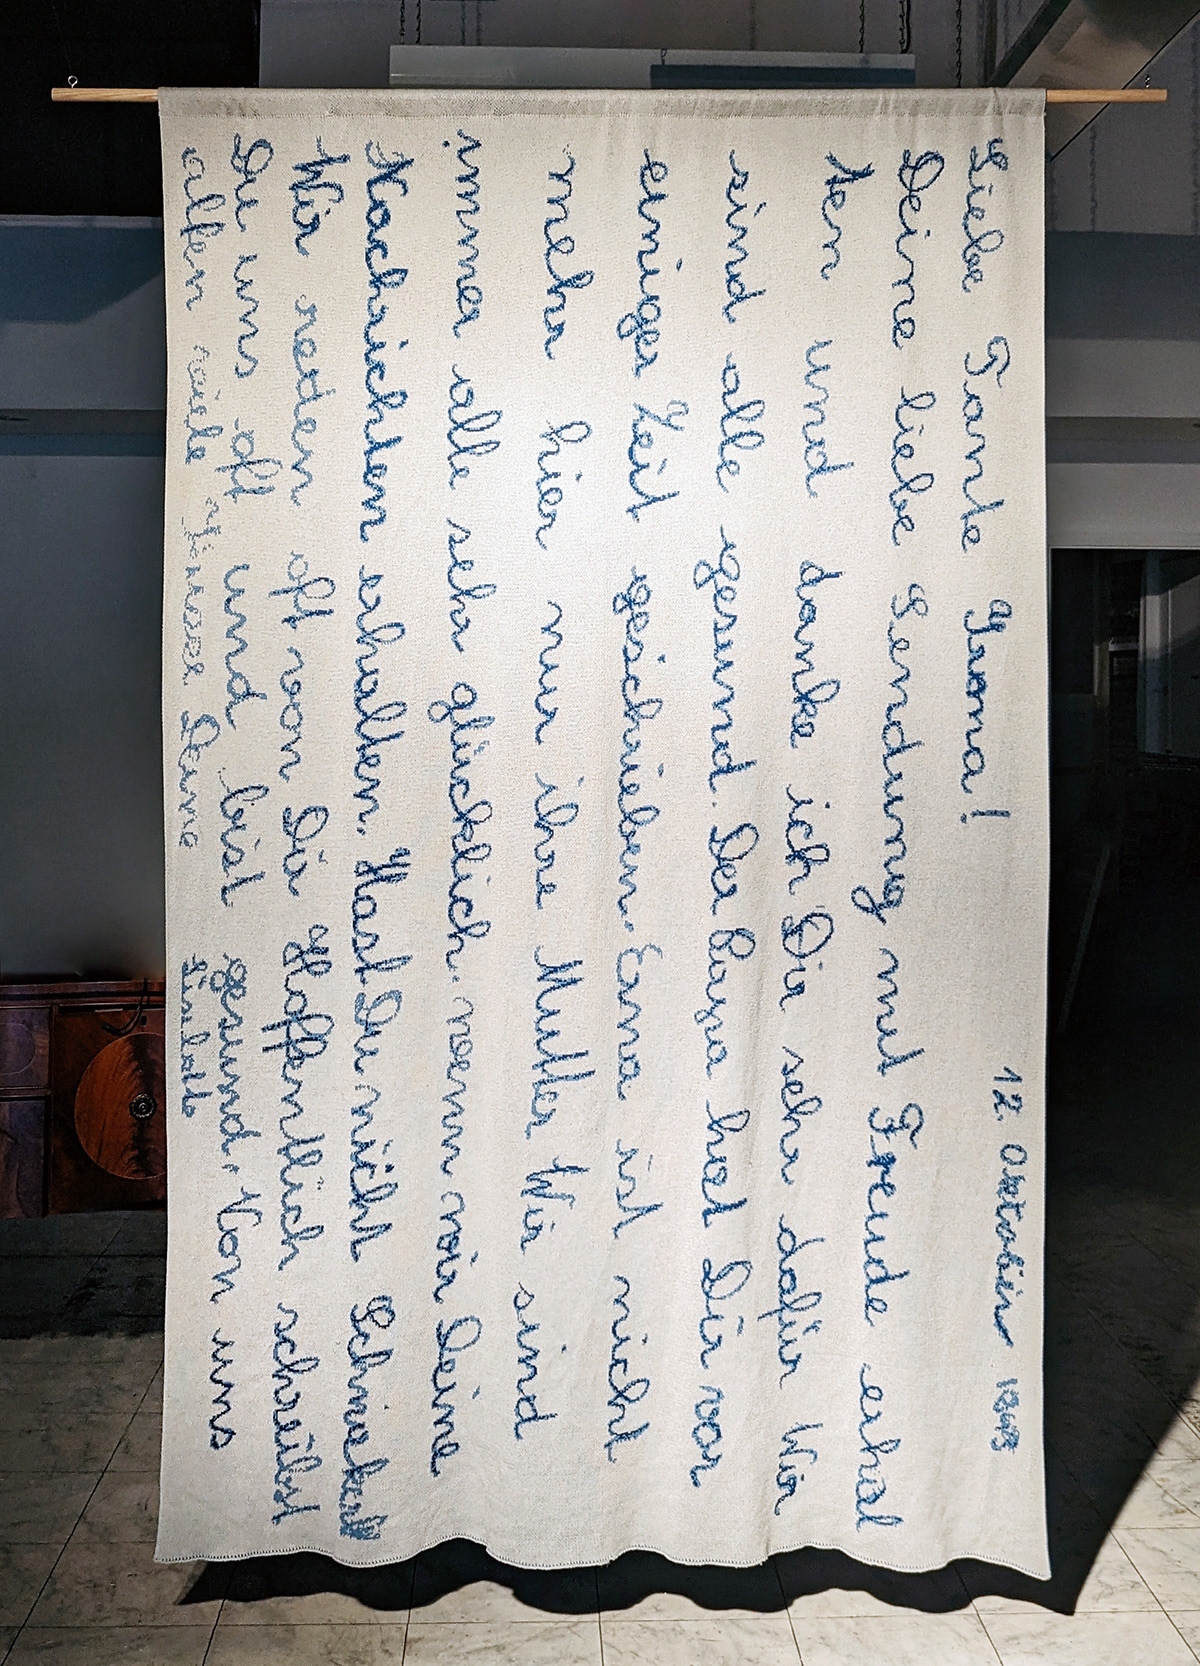 12. Oktober 1943
Liebe Tante Irma!
Deine liebe Sendung mit Freude erhal
ten und danke ich Dir sehr dafür Wir
sind alle gesund. Der Papa hat Dir vor
einiger Zeit geschrieben. Erna ist nicht
mehr hier nur ihre Mutter Wir sind
immer alle sehr glücklich. wenn wir Deine
Nachrichten erhalten. Hast Du nicht
Wir reden oft von Dir Hoffentlich schreibst
Du uns oft und bist gesund. Von uns
allen viele Küsse Deine Liselotte